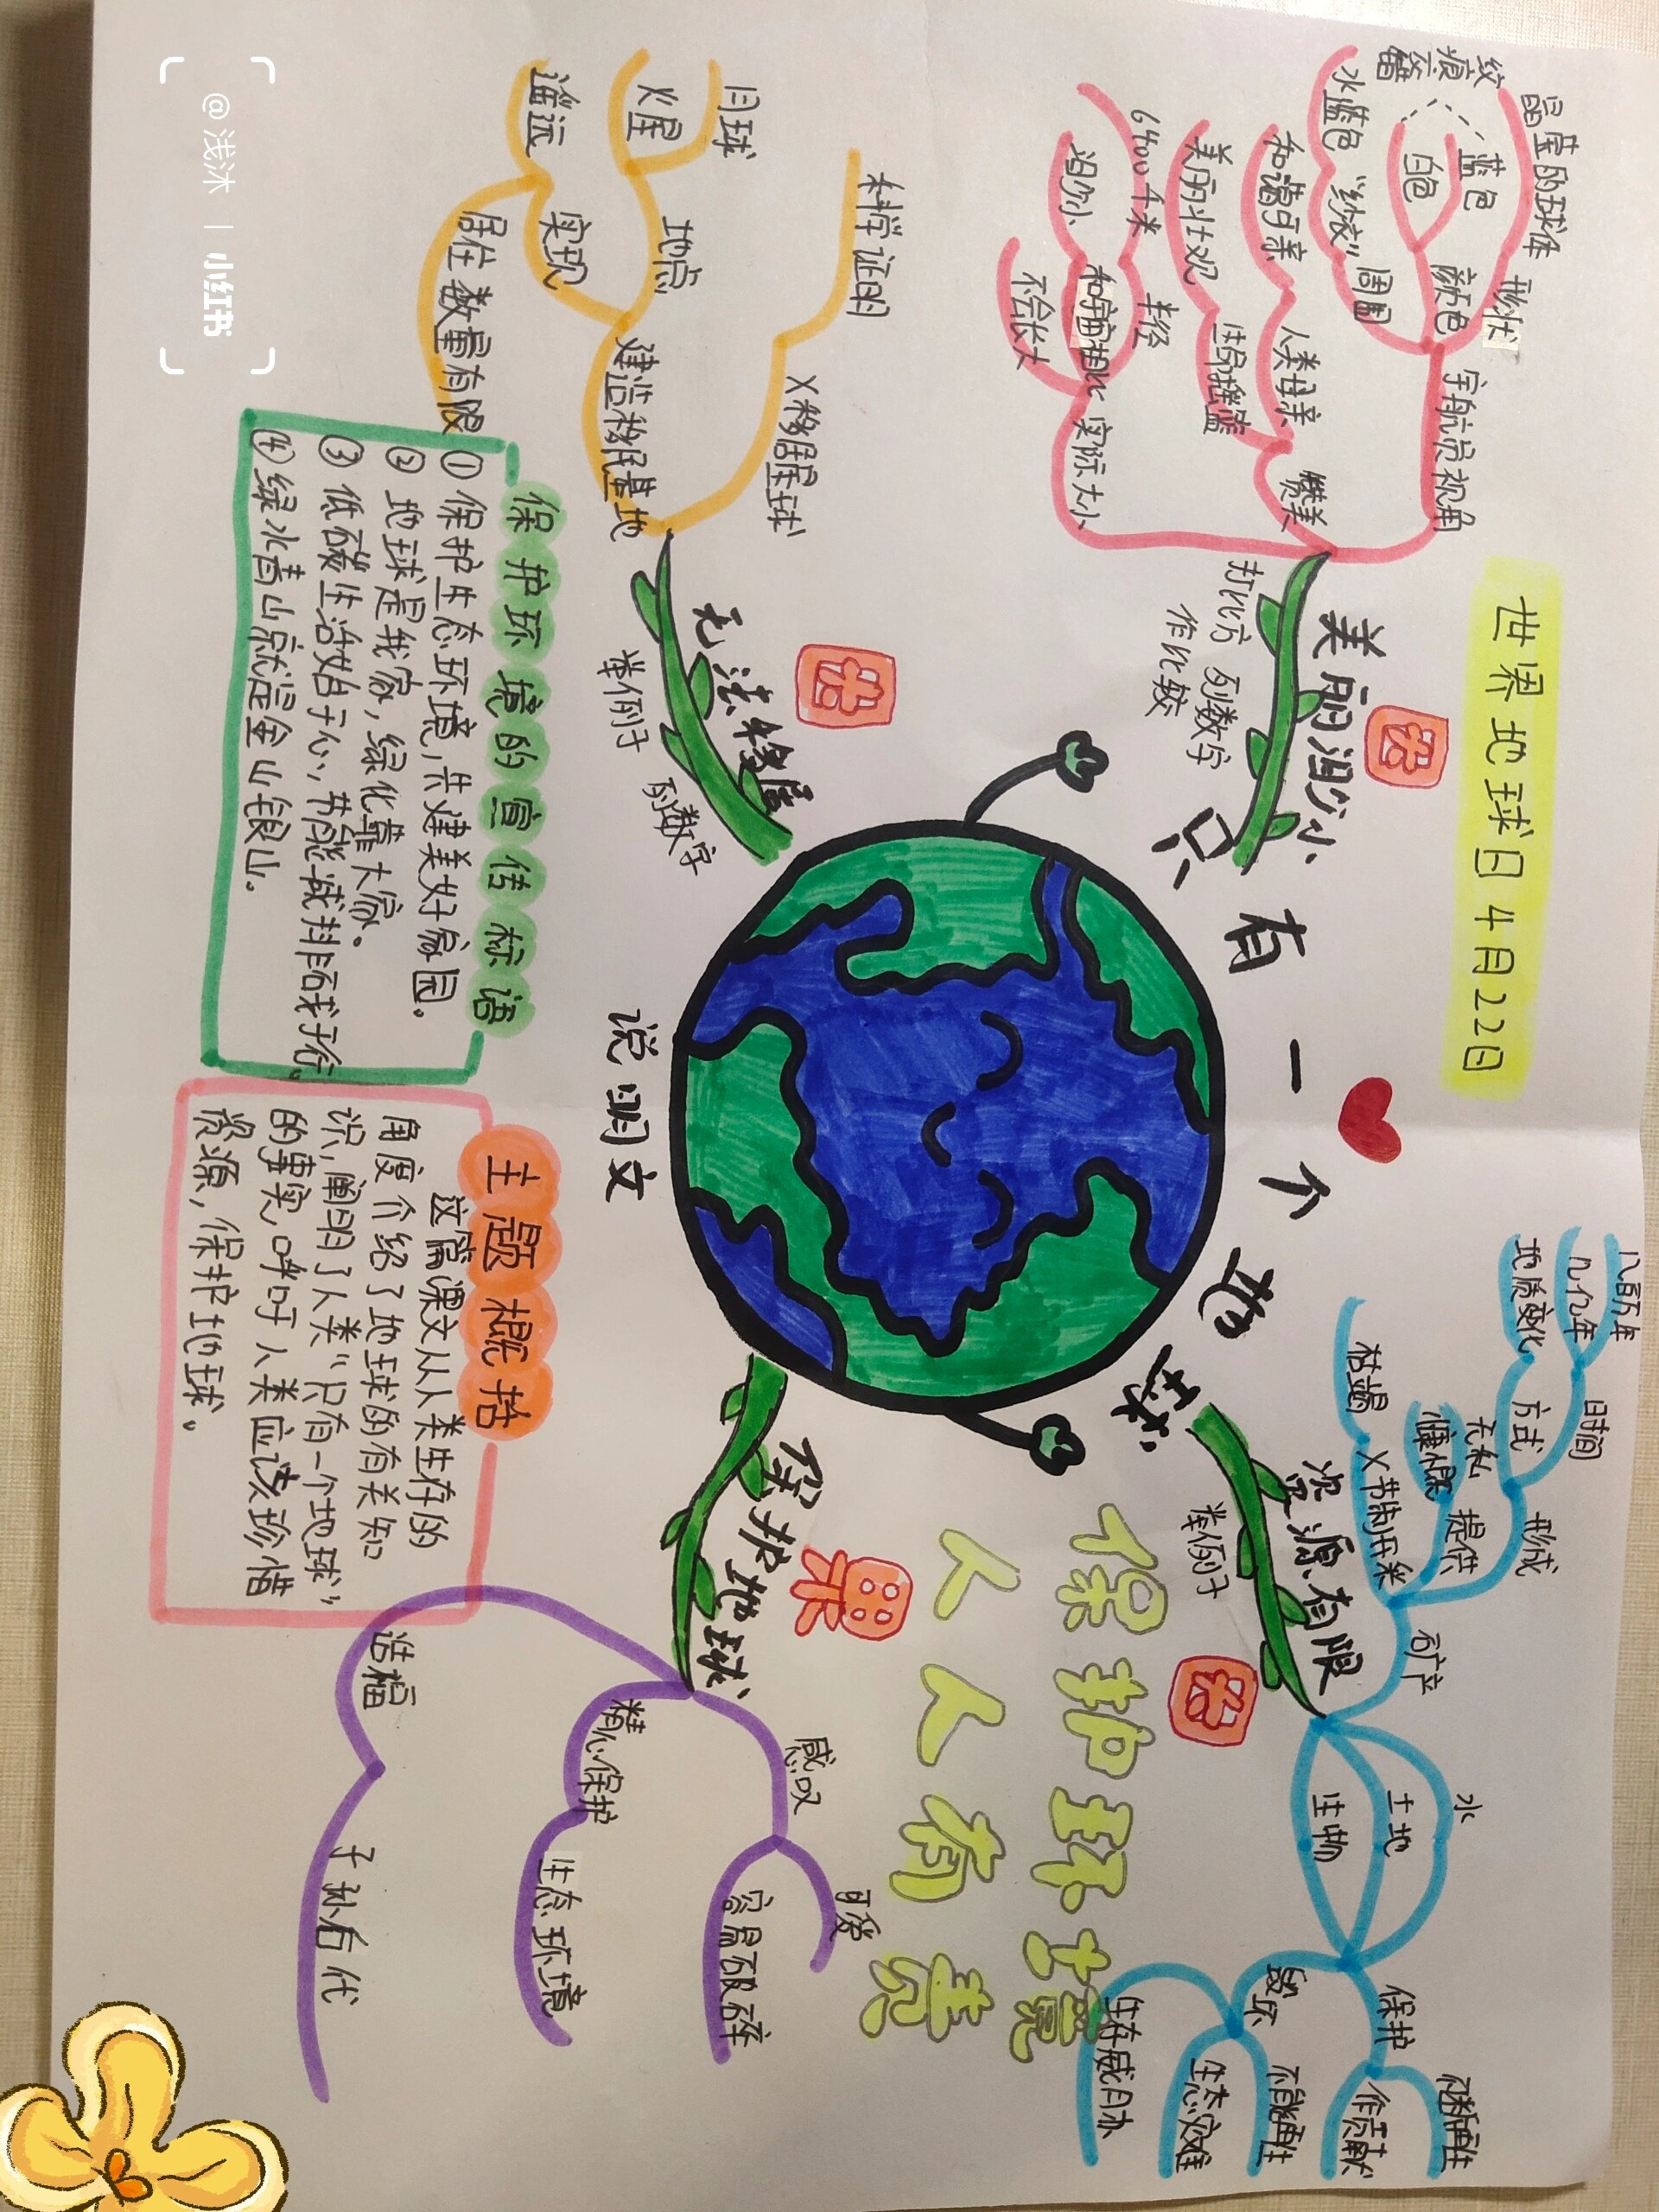 世界地球日4月22日
只有一个地球
说明文
美丽渺小
打比方 列数字
作比较
宇航员视角
形状
晶莹的球体
颜色
蓝色
白色
纹痕
周围
水蓝色“纱衣”
赞美
人类母亲
和蔼可亲
生命摇篮
美丽壮观
实际大小
半径
6400千米
和宇宙相比
渺小
不会长大
资源有限
举例子
矿产
形成
时间
几百万年
几亿年
方式
地质变化
提供
无私
慷慨
X节制开采
枯竭
水
土地
生物
保护
不断再生
作贡献
毁坏
不能再生
生态灾难
生存威胁
无法移居
举例子
列数字
X移居星球
科学证明
建造移民基地
地点
月球
火星
实现
遥远
居住数量有限
保护地球
感叹
可爱
容易破碎
精心保护
生态环境
造福
子孙后代
保护环境
人人有责
保护环境的宣传标语
①保护生态环境,共建美好家园.
②地球是我家,绿化靠大家.
③低碳生活始于心,节能减排践于行.
④绿水青山就是金山银山.
主题概括
这篇课文从人类生存的
角度介绍了地球的有关知
识,阐明了人类“只有一个地球”
的事实,呼吁人类应该珍惜
资源,保护地球.
@浅沐 | 小红书